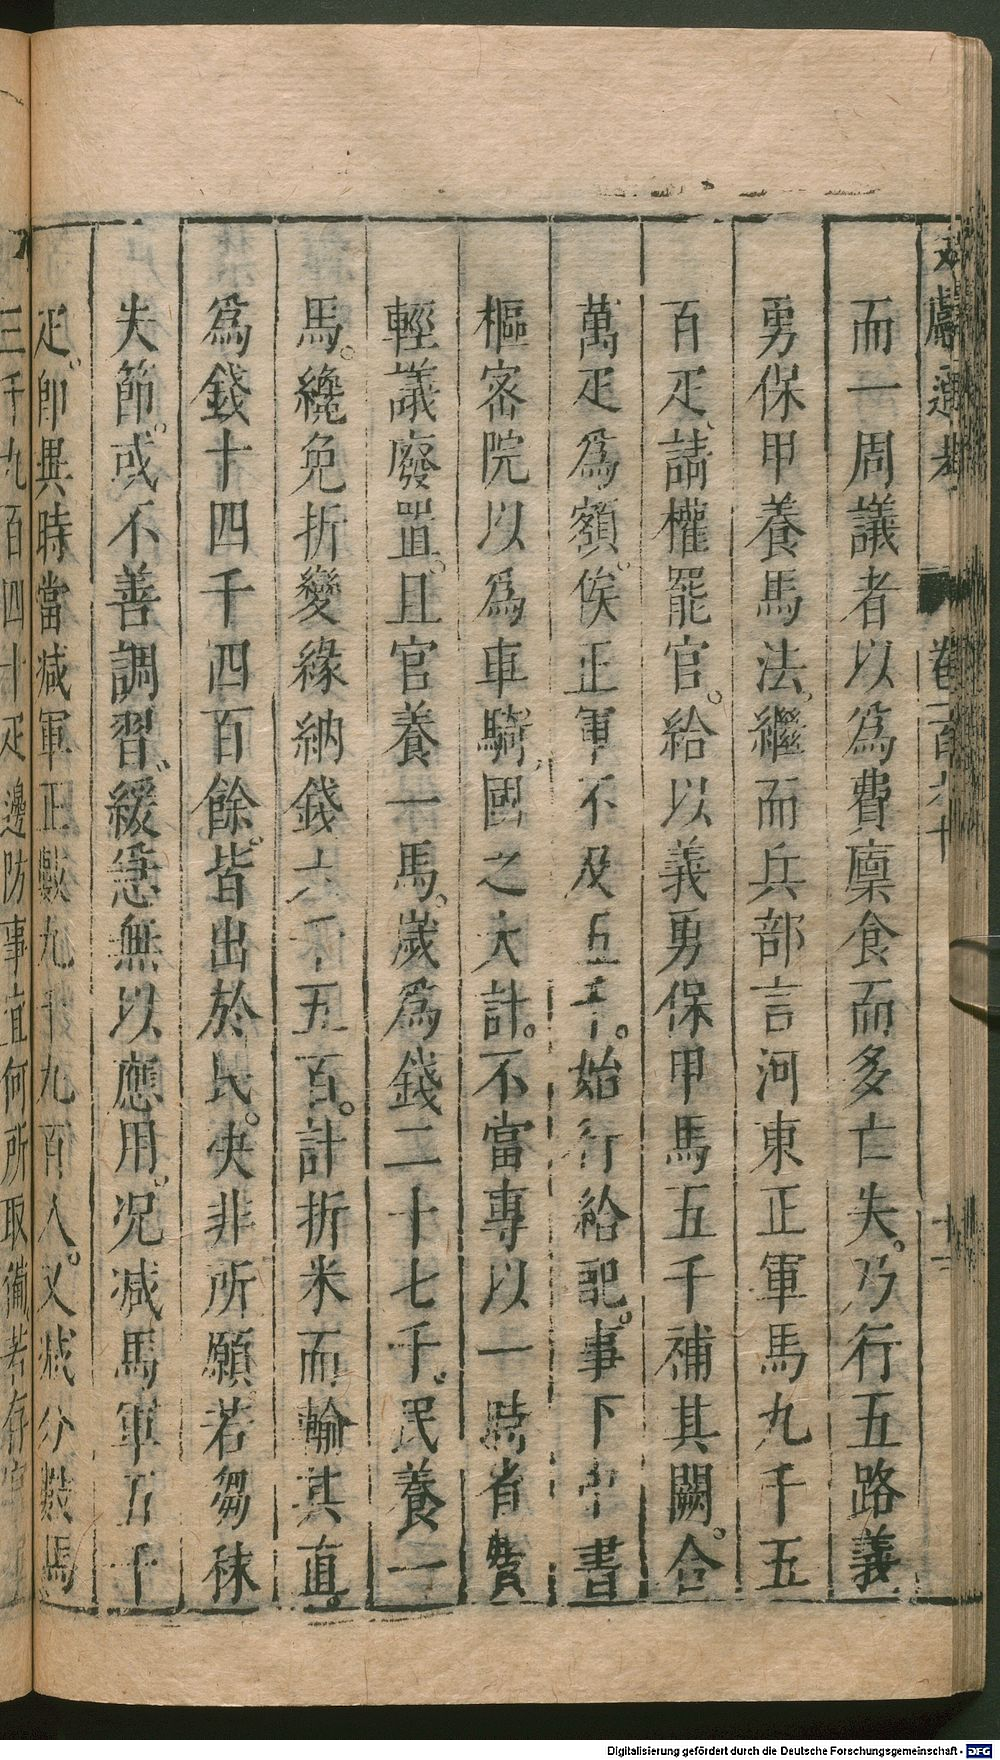 文獻通考 卷一百六十 十二
而一周議者以爲費廩食而多亡失。乃行五路義
勇保甲養馬法、繼而兵部言河東正軍馬九千五
百疋、請權罷官。給以義勇保甲馬五千補其闕。合
萬疋爲額。俟正軍不及五千。始行給配。事下中書
樞密院以爲車騎、國之大計。不當專以一時省費
輕議廢置。且官養一馬。歲爲錢二十七千。民養一
馬。纔免折變緣納錢六千五百。計折米而輸其直。
爲錢十四千四百餘。皆出於民。决非所願。若芻秣
失節。或不善調習、緩急無以應用。况减馬軍五千
疋。卽異時當减軍正數九千九百人。又减分數馬
三千九百四十疋邊防事宜何所取備若存
Digitalisierung gefördert durch die Deutsche Forschungsgemeinschaft - DFG